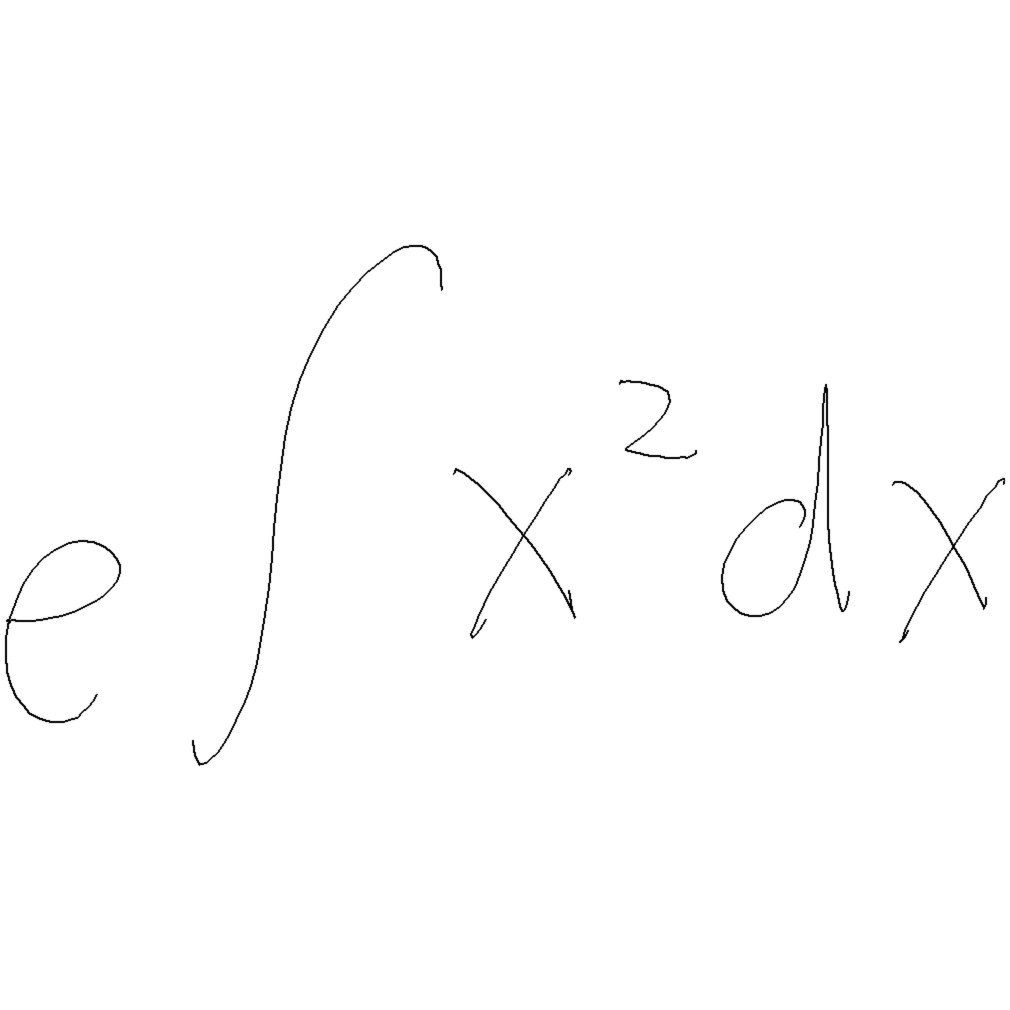 e∫x²dx